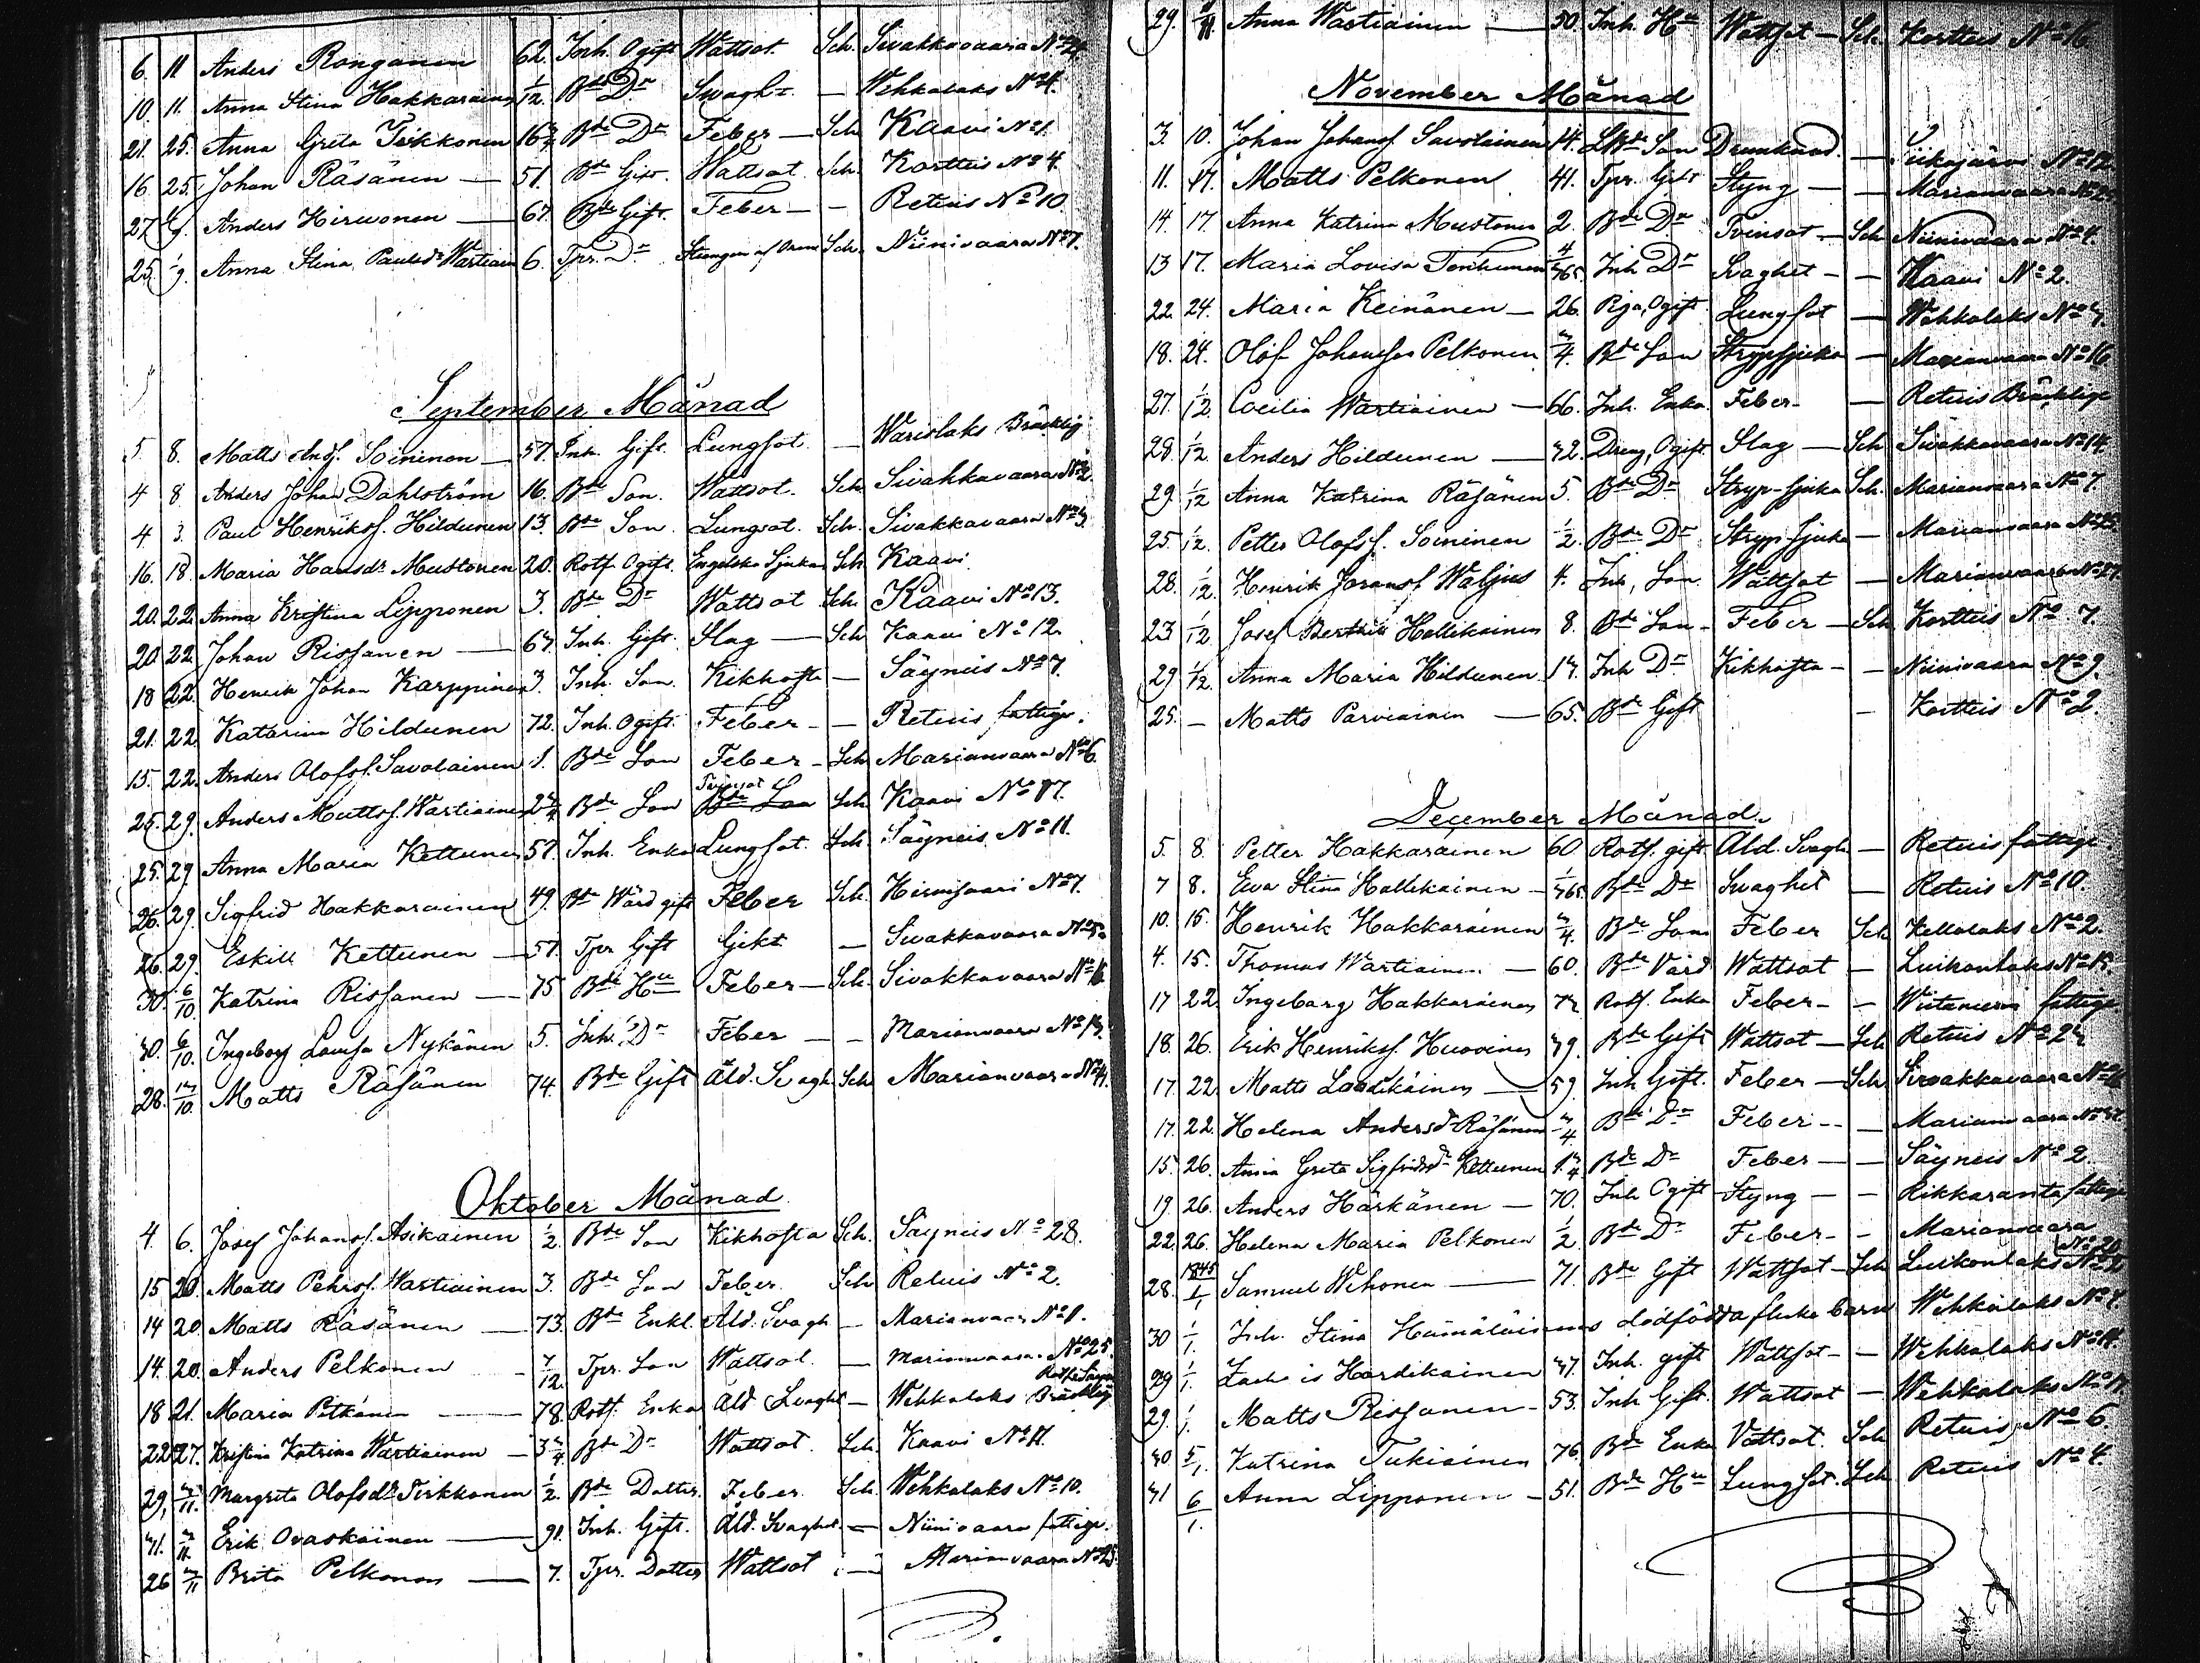 6. 11 Anders Ronganen 62. Inh. Ogift Wattsot. Sch. Sivakkavaara No 24.
10. 11. Anna Stina Hakkarainen 1/12. Bde Dr Swagh – Wehkalaks No 4.
21. 25. Anna Greta Tirkkonen 16 Bde Dr Feber – Sch Kaavi No 1.
16. 25. Johan Räsänen — 51. Bde Gift. Wattsot. Sch. Kortteis No 4.
27 Anders Hirwonen — 67. Bde Gift. Feber – – Retuis No 10.
25. 1/9. Anna Stina Paulsdr Wartiain 6. Tpr. Dr Stungen af Orm Sch. Niinivaara No 7.
September Månad
5. 8. Matts Andf. Soininen — 57. Inh. Gift. Lungsot. — Warislaks Bräcklig
4 8 Anders Johan Dahlström 16. Bde Son. Wattsot. Sch Sivakkavaara No 2.
4 3. Paul Henriksf. Hildunen 13. Bde Son. Lungsot. Sch. Sivakkavaara No 3.
16. 18. Maria Hansdr Mustonen 20. Rotf. Ogift. Engelska Sjukan Sch Kaavi.
20. 22. Anna Kristina Lipponen 3. Bde Dr Wattsot Sch Kaavi No 13.
20 22. Johan Rissanen — 67. Inh. Gift. Slag — Sch Kaavi No 12.
18 22. Henrik Johan Karppinen 3. Inh. Son. Kikhosta — Säyneis No 7.
21. 22. Katarina Hildunen 72. Inh. Ogift. Feber – — Retuis fattige.
15. 22. Anders Olofsf. Savolainen 1. Bde Son Feber – Sch Marianvaara No 6.
25. 29. Anders Mattsf. Wartiainen 2 3/4 Bde Son Tvinsot Sch Kaavi No 17.
25. 29. Anna Maria Kettunen 57. Inh. Enka Lungsot. Sch. Säyneis No 11.
26. 29. Sigfrid Hakkarainen 49. Bde Wärd gift Feber Sch. Hirvisaari No 7.
26. 29. Eskill Kettunen — 57. Tpr Gift Gikt — Sivakkavaara No
30. 6/10. Katrina Rissanen — 75 Bde Hu Feber – Sch. Sivakkavaara No 16
30. 6/10. Ingeborg Lovisa Nykänen 5. Inh. Dr Feber – – Marianvaara No 13.
28. 13/10. Matts Räsänen 74. Bde Gift Åld. Svagh Sch Marianvaara No 4.
Oktober Månad
4. 6. Josef Johansf. Asikainen 1/2. Bde Son Kikhosta Sch. Säyneis No 28.
15 20. Matts Pehrsf. Wartiainen 3. Bde Son Feber. Sch Retuis No 2.
14 20. Matts Räsänen — 73. Bde Enkl. Åld. Svagh – Marianvaara No 1.
14. 20. Anders Pelkonen - 7/12. Tpr. Son Wattsot. — Marianvaara No 25.
18 21. Maria Pitkänen — 78. Rotf. Enka Åld Svaght – Wehkalaks Bräcklig
22 27. Kristina Katrina Wartiainen – 3 3/4 Bde Dr Wattsot. Sch. Kaavi No 17.
29, 3/11. Margreta Olofsdr Tirkkonen 1/2. Bde Dotter. Feber. Sch. Wehkalaks No 10.
31. 3/11. Erik Ovaskainen — 91. Inh. Gift. Åld. Svaghet – Niinivaara fattige.
26 3/11 Brita Pelkonen — 7. Tpr. Dotter Wattsot – Marianvaara No 25.
29. 3/11. Anna Wartiainen — 50. Inh. Hu Wattsot – Sch. Kortteis No 16.
November Månad
3. 10. Johan Johansf. Savolainen 14. Bde Son Drunknad. — Siikajärvi No 12
11. 17. Matts Pelkonen 41. Tpr. Gift Styng — – Marianvaara No 25.
14. 17. Anna Katrina Mustonen 2. Bde Dr Tvinsot – Sch Niinivaara No 4.
13 17. Maria Lovisa Tenhunen 4/365 Inh Dr Svaghet – – Kaavi No 2.
22. 24. Maria Keinänen – 26. Piga, Ogift Lungsot – Wehkalaks No 3.
18. 24. Olof Johansson Pelkonen 3/4. Bde Son Strypsjuka – Marianvaara No 16.
27. 1/12. Cecilia Wartiainen – 66. Inh. Enka. Feber – – Retuis Bräcklige
28. 1/12. Anders Hildunen — 32. Dreng, Ogift. Slag – Sch Sivakkavaara No 14.
29. 1/12 Anna Katrina Räsänen 5. Bde Dr Stryp-sjuka Sch. Marianvaara No 7.
25. 1/12. Petter Olofsf. Soininen 1/2. Bde Dr Stryp-sjuka – Marianvaara No 25.
28. 1/12 Henrik Joransf. Waljus 4. Inh. Son Wattsot – Marianvaara No 27.
23 1/12 Josef Berthill Hallikainen 8. Bde Son – Feber – Sch Kortteis No 7.
29 1/12. Anna Maria Hildunen 13. Inh Dr Kikhosta – – Niinivaara No 9.
25. – Matts Parviainen — 65. Bde Gift – Kortteis No 2.
December Månad.
5. 8. Petter Hakkarainen 60. Rotf. gift Åld. Svagh – Retuis fattige
7 8. Ewa Stina Hallikainen – 1/365. Bde Dr Svaghet — Retuis No 10.
10. 15. Henrik Hakkarainen 3/4. Bde Son Feber Sch Kellolaks No 2.
4. 15. Thomas Wartiainen – 60. Bde Värd Wattsot – Luikonlaks No 15.
17 22. Ingeborg Hakkarainen 72 Rotf. Enka Feber – – Wiitaniemi fattige
18. 26. Erik Henriksf. Huovinen 39. Bde Gift Wattsot – Sch Retuis No 23
17. 22. Matts Laatikainen – 59. Inh. Gift. Feber – Sch. Sivakkavaara No 16
17. 22. Helena Andersd. Räsänen 3/4 Bde Dr Feber – – – Marianvaara No
15. 26. Anna Greta Sigfridsdr Kettunen 1 3/4. Bde Dr Feber – – Säyneis No 2.
19. 26. Anders Härkänen – 70. Inh Ogift Styng – – Rikkaranta fattige
22. 26. Helena Maria Pelkonen 1/2 Bde Dr Feber – – Marianvaara No 20.
28. 1845 1/1 Samuel Wihonen — 71. Bde Gift Wattsot – Sch Luikonlaks No 2
30 1/1. Inh. Stina Hämäläinens dödfödda flicke barn Wehkalaks No 4.
29 1/1. Zachris Hardikainen 37. Inh. gift Wattsot – – Wehkalaks No 14.
29. 1/1. Matts Rissanen – 53. Inh. Gift. Wattsot – Wehkalaks No 17.
30 5/1. Katrina Tukiainen 76. Bde Enka Vattsot. Sch Retuis No 6.
31 6/1. Anna Lipponen – 51. Bde Hu Lungsot. Sch Retuis No 4.